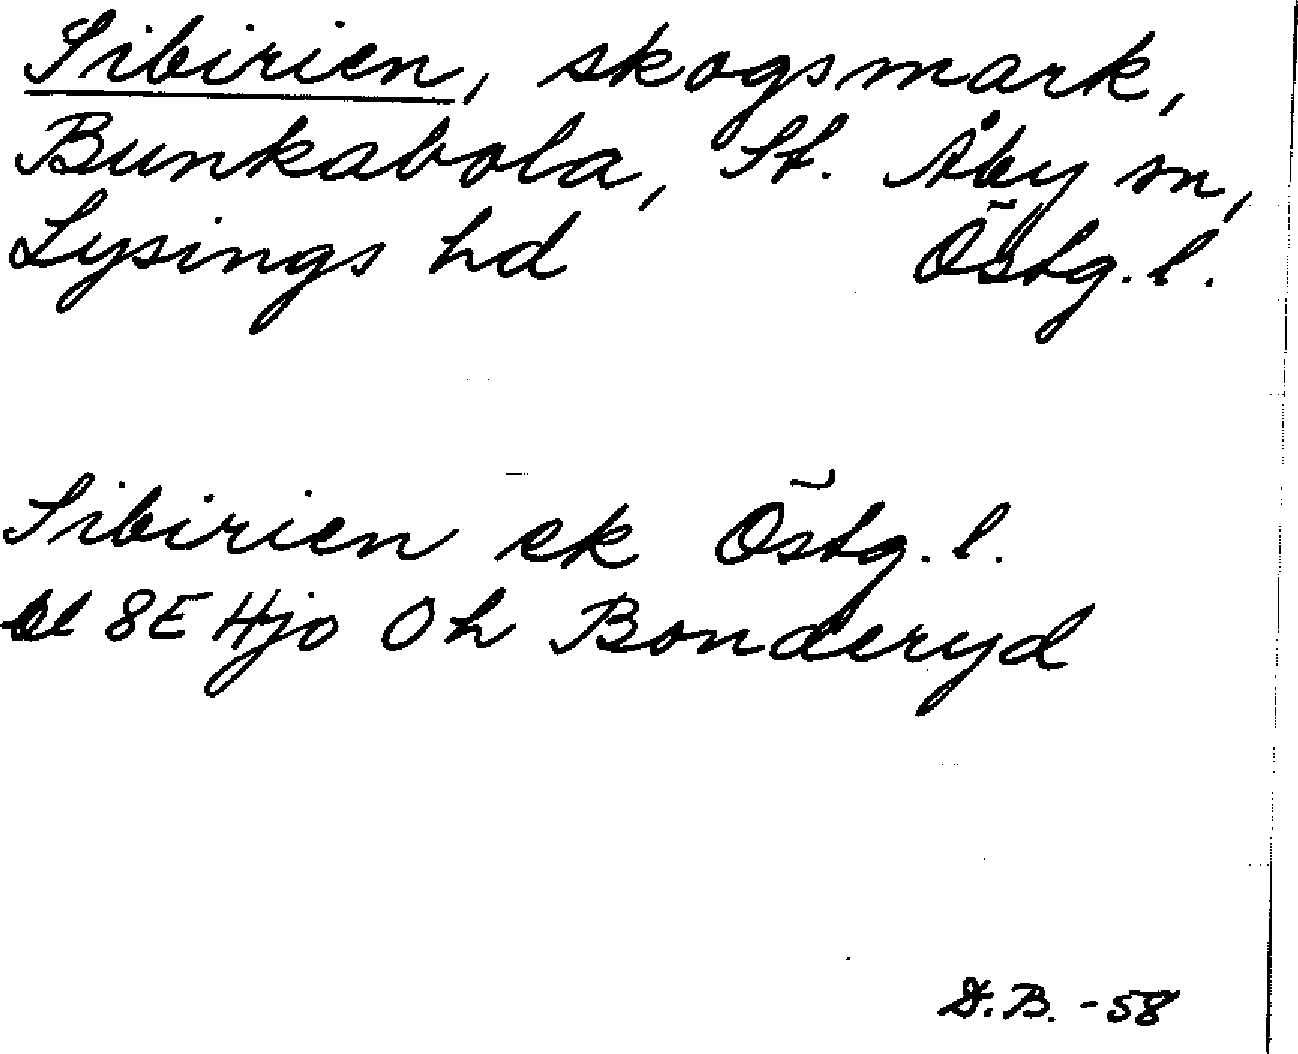 Sibirien, skogsmark,
Bunkabola, St. Åby sn,
Lysings hd Östg. l.
Sibirien ek Östg. l.
bl 8E Hjo 0h Bonderyd
D.B. -58